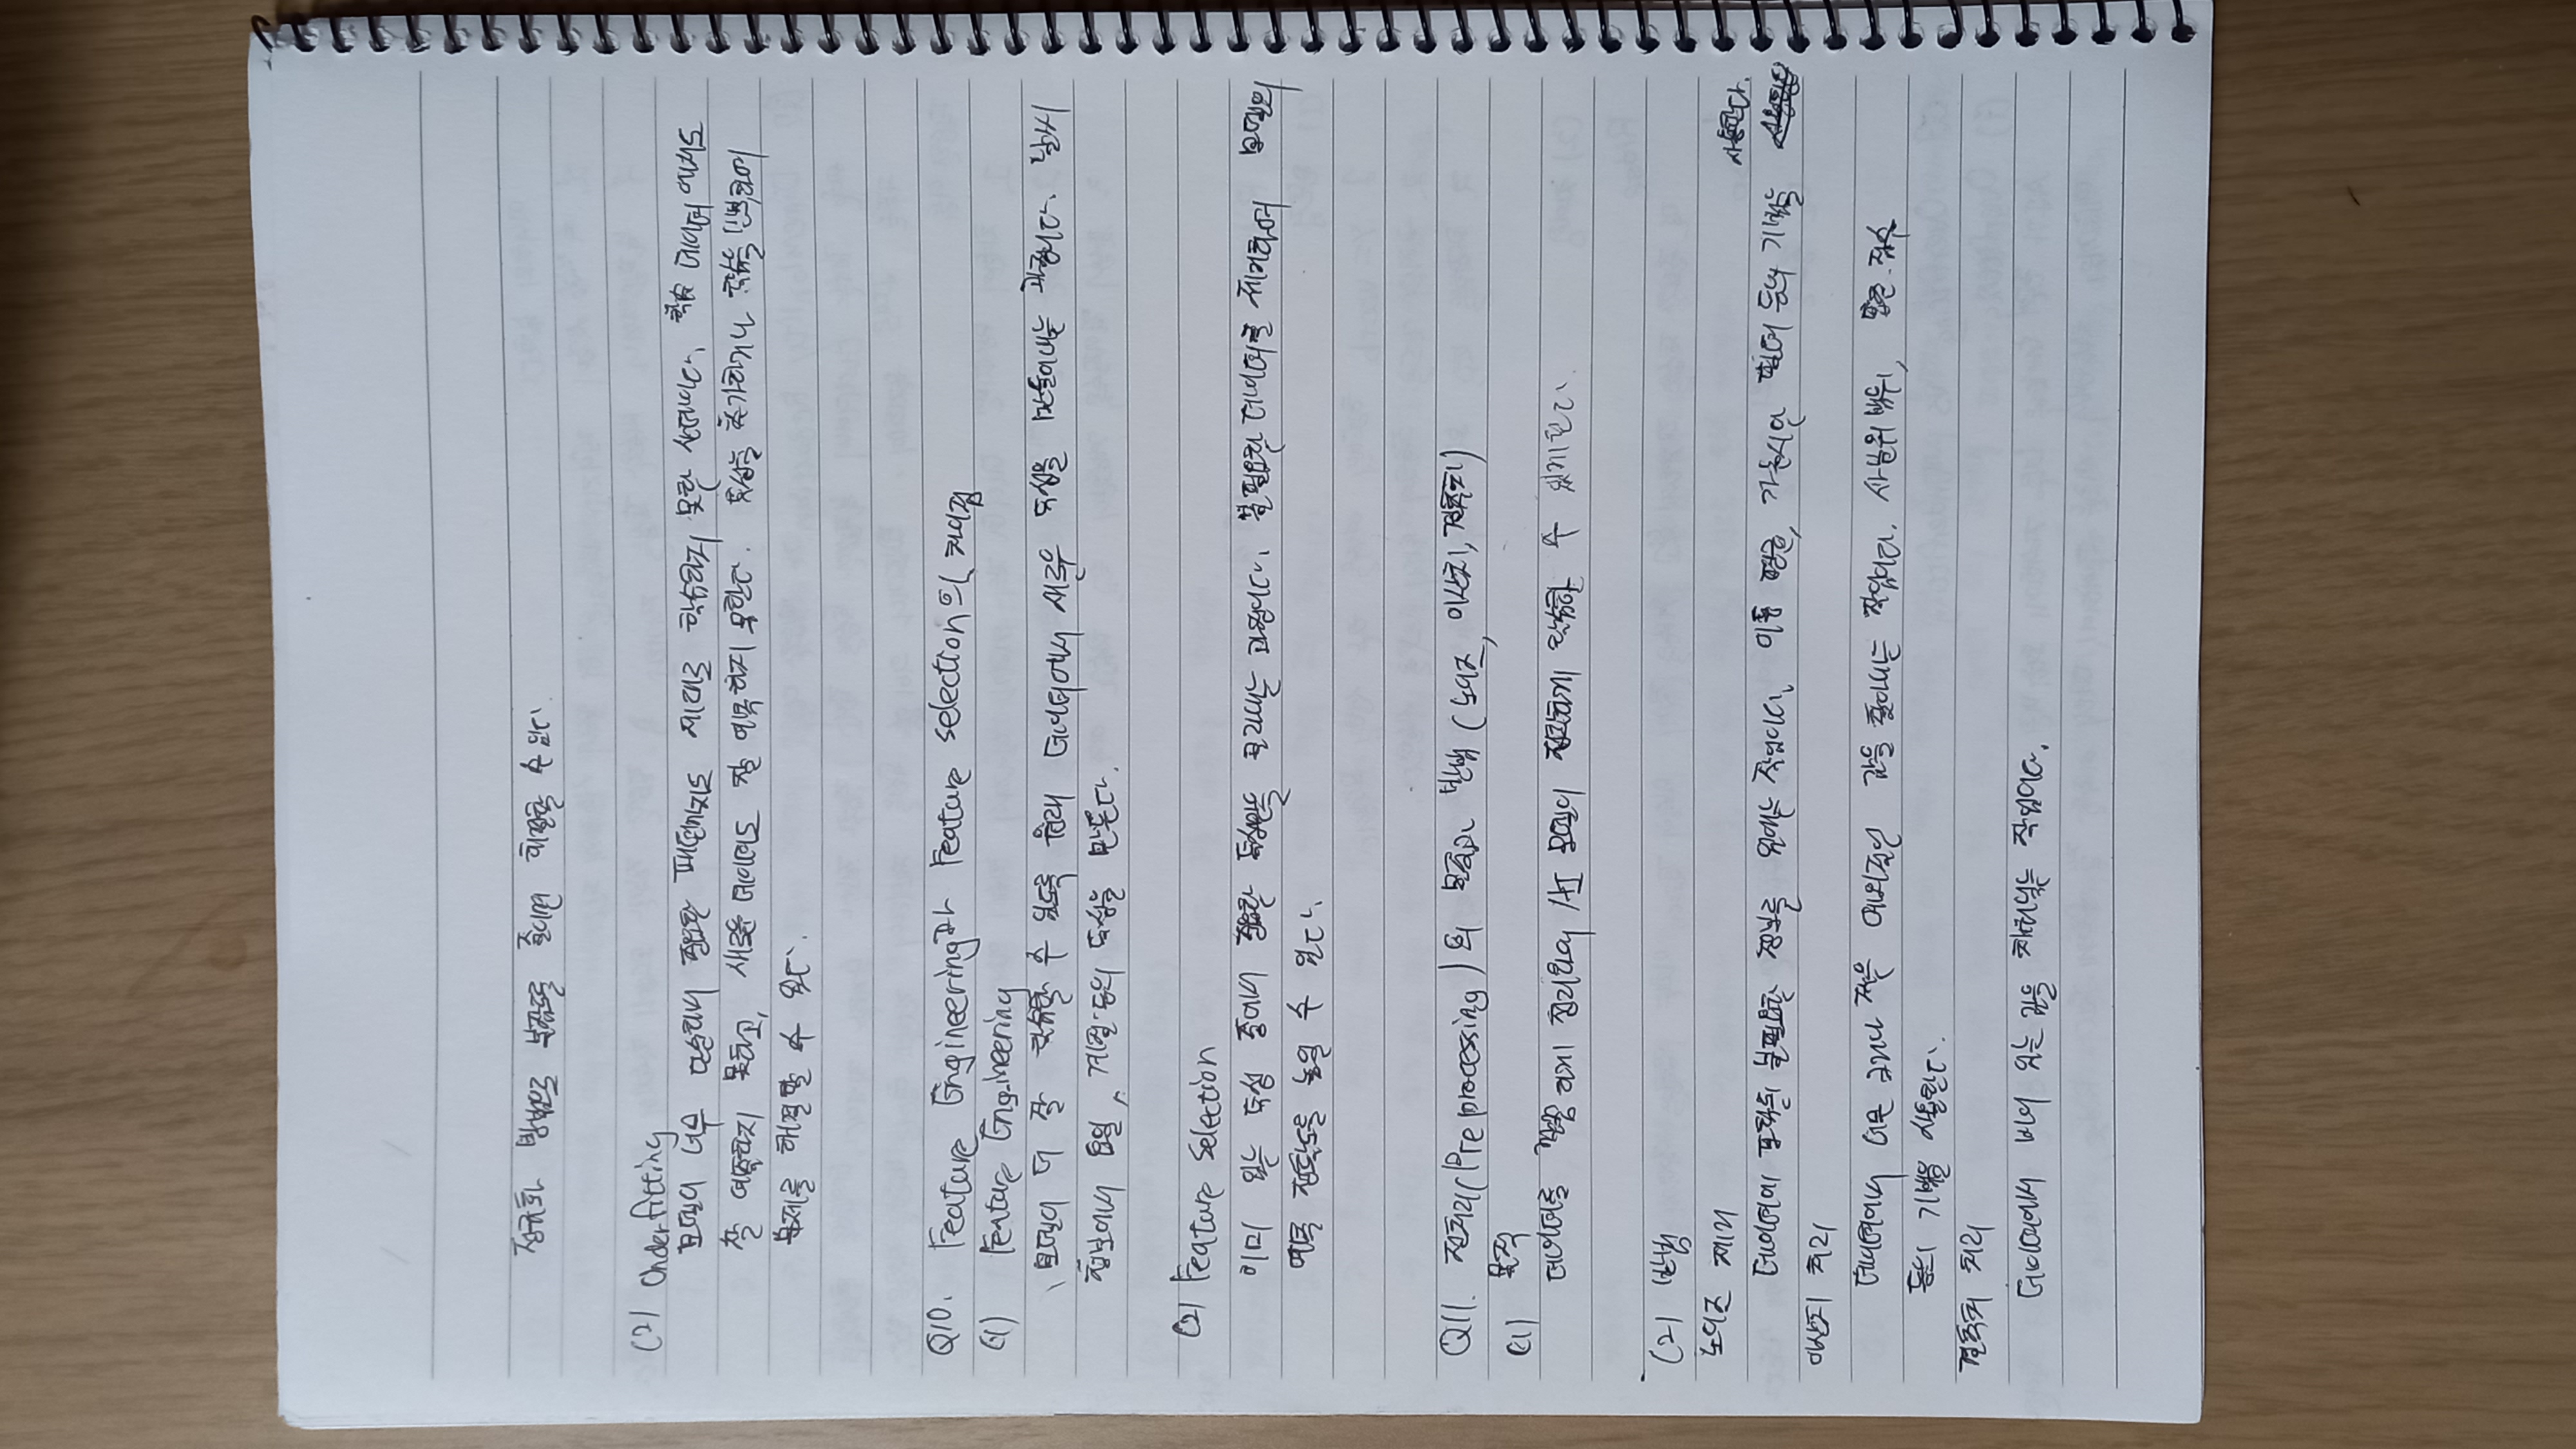 정규화 방법으로 복잡도를 줄이면 해결할 수 있다.
(2) Underfitting
모델이 너무 단순해서 중요한 패턴까지도 제대로 학습하지 못한 상태이다. 학습 데이터에서도
잘 예측하지 못하고, 새로운 데이터도 잘 예측하지 못한다. 특성을 추가하거나 학습을 반복하여
문제를 해결할 수 있다.
Q10. Feature Engineering과 Feature selection의 차이점
(1) Feature Engineering
모델이 더 잘 학습할 수 있도록 원래 데이터에서 새로운 특성을 만들어내는 과정이다. 날씨
정보에서 요일, 계절 등의 특성을 만든다.
(2) Feature Selection
이미 있는 특성 중에서 중요한 특성만을 골라내는 과정이다. 불필요한 데이터를 제거하여 모델의
예측 정확도를 높일 수 있다.
Q11. 전처리(Preprocessing)의 목적과 방법 (노이즈, 이상치, 결측치)
(1) 목적
데이터를 깔끔하게 정리하여 모델이 정확하게 학습할 수 있게 된다.
(2) 방법
노이즈 제거
사용한다.
데이터에 포함된 불필요한 정보를 없애는 작업이다. 이동 평균, 가우시안 필터 등의 기법을
이상치 처리
데이터에서 너무 크거나 작은 예외적인 값을 찾아내는 작업이다. 사분위 범위, 표준 점수
등의 기법을 사용한다.
결측치 처리
데이터에서 비어 있는 값을 채워넣는 작업이다.